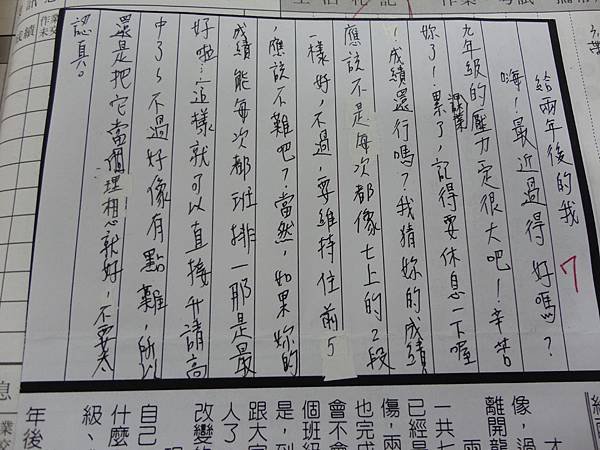 給兩年後的我
嗨！最近過得好嗎？
九年級的壓力一定很大吧！辛苦
妳了！課業累了，記得要休息一下喔
！成績還行嗎？我猜妳的成績
應該不是每次都像七上的2段
一樣好，不過，要維持住前5
，應該不難吧？當然，如果妳的
成績能每次都班排一那是最
好啦…這樣就可以直接升請高
中了，不過好像有點難，所以
還是把它當個理想就好，不要太
認真。
7
像，過
離開龍
一共七
已經是
傷，兩
也完成
會不會
個班級
是，到
跟大家
人了
改變的
自己
什麼
級、
年後
成績
作業
未交
息